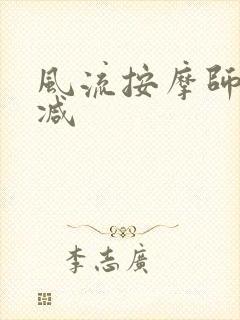 風流按摩師
减
李志廣